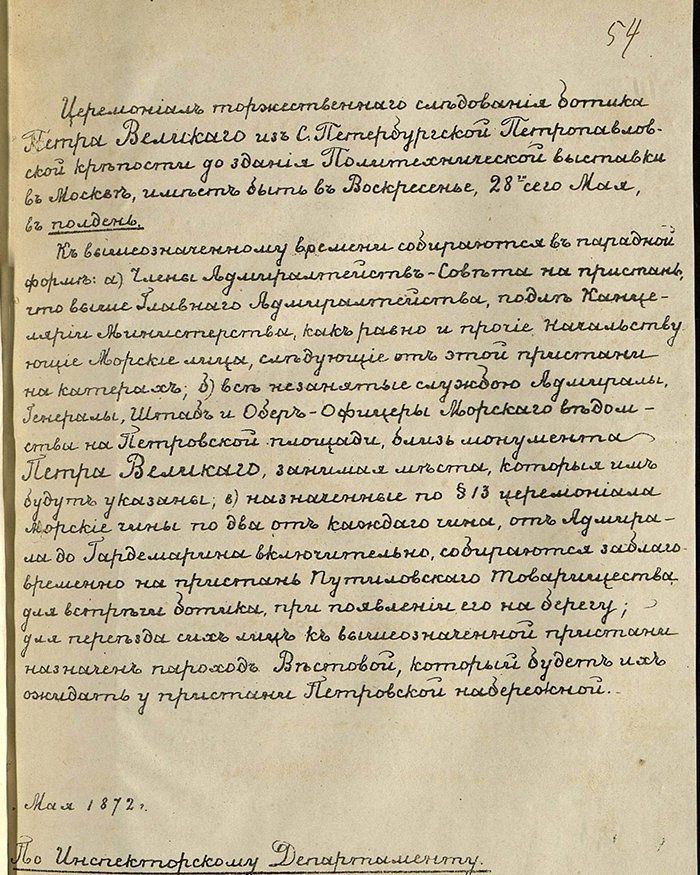 54
Церемоніалъ торжественнаго слѣдованія ботика
Петра Великаго изъ С. Петербургской Петропавлов-
ской крѣпости до зданія Политехнической выставки
въ Москвѣ, имѣетъ быть въ Воскресенье, 28го сего Мая,
въ полдень.
Къ вышеозначенному времени собираются въ парадной
формѣ: а) Члены Адмиралтействъ-Совѣта на пристань,
что выше Главнаго Адмиралтейства, подлѣ Канце-
ляріи Министерства, какъ равно и прочіе Начальству
ющіе Морскіе лица, слѣдующіе отъ этой пристани
на катерахъ; б) всѣ незанятые службою Адмиралы,
Генералы, Штабъ и Оберъ-Офицеры Морскаго вѣдом-
ства на Петровской площади, близь монумента
Петра Великаго, занимая мѣста, которыя имъ
будутъ указаны; в) назначенные по § 13 церемоніала
Морскіе чины по два отъ каждаго чина, отъ Адмира-
ла до Гардемарина включительно, собираются заблаго
временно на пристань Путиловскаго Товарищества
для встрѣчи ботика, при появленіи его на берегу;
для переѣзда сихъ лицъ къ вышеозначенной пристани
назначенъ пароходъ Вѣстовой, который будетъ ихъ
ожидать у пристани Петровской набережной.
Мая 1872 г.
По Инспекторскому Департаменту.